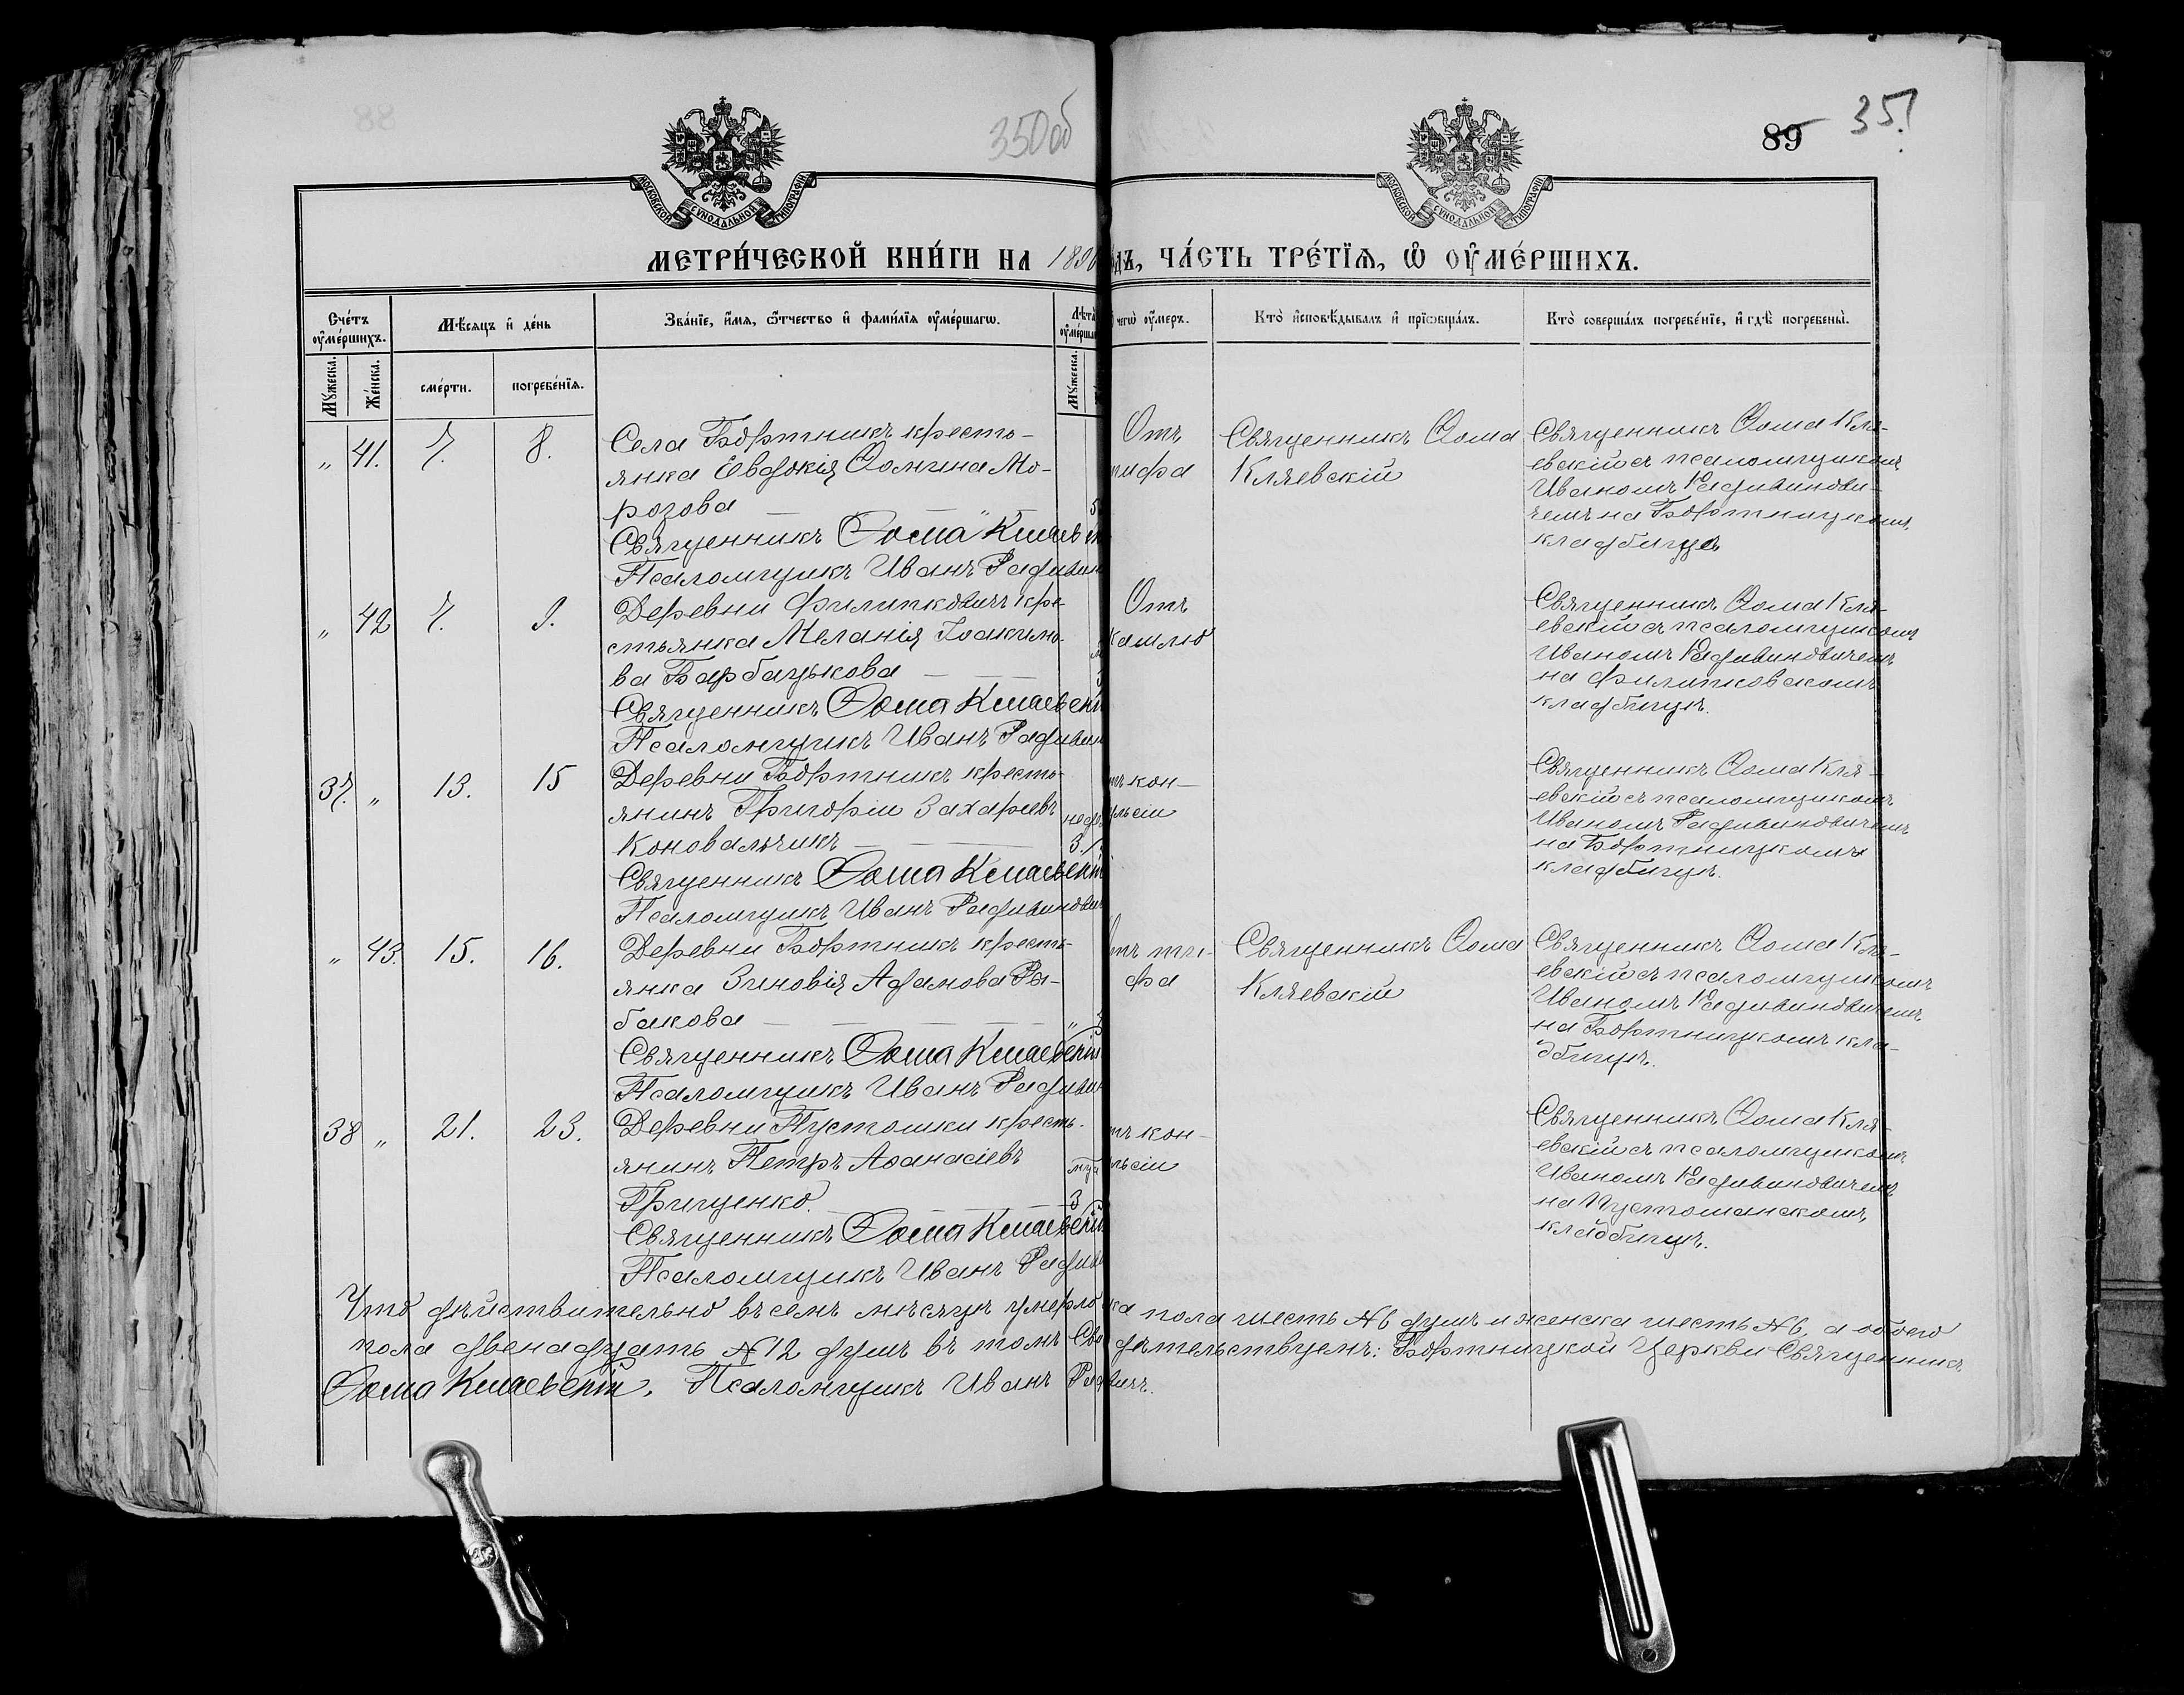 350 об
89 351
МОСКОВСКОЙ СѴНОДАЛЬНОЙ ТИПОГРАФІИ
МОСКОВСКОЙ СѴНОДАЛЬНОЙ ТИПОГРАФІИ
МЕТРИ́ЧЕСКОЙ КНИ́ГИ НА 1890 ДЪ, ЧА́СТЬ ТРЕ́ТІѦ, Ѡ ОУМЕ́РШИХЪ.
Сче́тъ оумершихъ.
Мѣ́сяцъ и де́нь
Зва́ніе, и́мя, ѻ́тчество и фами́лія оуме́ршагѡ.
Лѣта оумерша
чегѡ̀ оу́меръ.
Кто̀ исповѣ́дывалъ и пріѡбща́лъ.
Кто̀ соверша́лъ погребе́ніе, и гдѣ̀ погребены̀.
Му́жеска.
Же́нска.
сме́рти.
погребе́нія.
Му́жеска.
„ 41. 7. 8.
Села Бортникъ кресть-
янка Евдокія Ѳомина Мо-
розова
Священникъ Ѳома Кляевск
Псаломщикъ Иванъ Радивин
Отъ
тифа
Священникъ Ѳома
Кляевскій
Священникъ Ѳома Кля-
евскій съ псаломщикомъ
Иваномъ Радивинови-
чемъ на Бортницкомъ
кладбищѣ
„ 42 7. 9.
Деревни Филипковичъ кре-
стьянка Меланія Іоакимо-
ва Барбацькова
Священникъ Ѳома Кляевскій
Псаломщикъ Иванъ Радивин
Отъ
кашлю
Священникъ Ѳома Кля-
евскій съ псаломщикомъ
Иваномъ Радивиновичемъ
на Филипковскомъ
кладбищѣ.
37. „ 13. 15
Деревни Бортникъ кресть-
янинъ Григорій Захаріевъ
Коновальчикъ
нед
3.
Священникъ Ѳома Кляевскій
Псаломщикъ Иванъ Радивинович
тъ кон-
ульсіи
Священникъ Ѳома Кля-
евскій съ псаломщикомъ
Иваномъ Радивиновичемъ
на Бортницкомъ
кладбищѣ.
„ 43. 15. 16.
Деревни Бортникъ кресть-
янка Зиновія Адамова Ры-
бакова „
Священникъ Ѳома Кляевскій
Псаломщикъ Иванъ Радивин
отъ ти-
фа
Священникъ Ѳома
Кляевскій
Священникъ Ѳома Кля-
евскій съ псаломщикомъ
Иваномъ Радивиновичемъ
на Бортницкомъ кла-
дбищѣ.
38 „ 21. 23.
Деревни Пустошки кресть-
янинъ Петръ Аѳанасіевъ
Грищенко.
мца
3
Священникъ Ѳома Кляевскій
Псаломщикъ Иванъ Радив
тъ кон-
ульсіи
Священникъ Ѳома Кля-
евскій съ псаломщикомъ
Иваномъ Радивиновичемъ
на Пустошанскомъ
кладбищѣ.
Что дѣйствительно въ семъ мѣсяцѣ умерло ска пола шесть № 6 душъ и женска шесть № 6, а обоего
пола двенадцать № 12 душъ въ томъ Свидѣтельствуемъ: Бортницкой Церкви Священникъ
Ѳома Кляевскій. Псаломщикъ Иванъ Радвичъ.